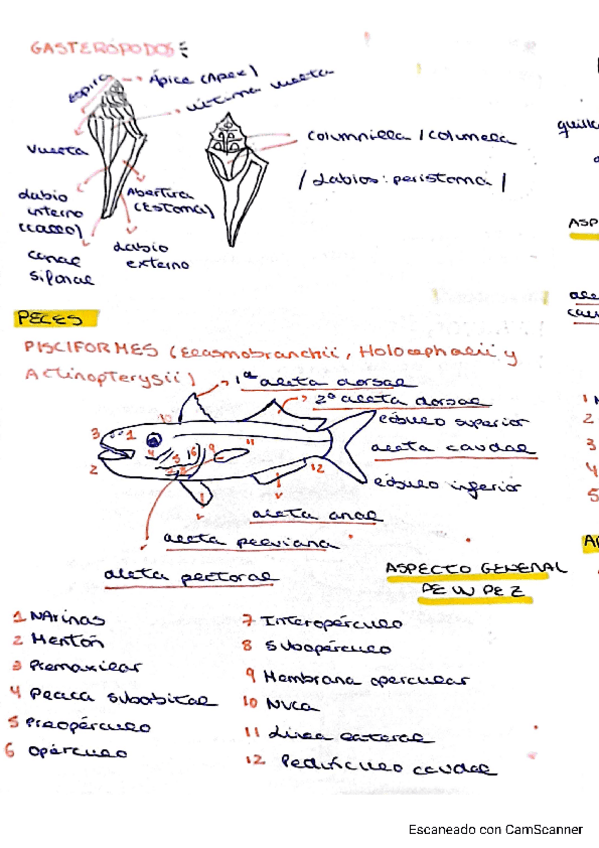 GASTERÓPODOS:
Espira
Ápice (Apex)
Última vuelta
Vuelta
Columnilla / columela
/ Labios: peristoma /
Labio
interno
(callo)
Abertura
(Estoma)
canal
sifonal
Labio
externo
PECES
PISCIFORMES (Elasmobranchii, Holocephalii y
Actinopterygii)
1ª aleta dorsal
2ª aleta dorsal
lóbulo superior
aleta caudal
lóbulo inferior
aleta anal
aleta pelviana
aleta pectoral
10
3
1
4
5
6
9
11
7
8
2
12
ASPECTO GENERAL
DE UN PEZ
1 Narinas
2 Mentón
3 Premaxilar
4 Placa suborbital
5 Preopérculo
6 opérculo
7 Interopérculo
8 Subopérculo
9 Membrana opercular
10 Nuca
11 Línea lateral
12 Pedúnculo caudal
ASP
1
2
3
4
5
Escaneado con CamScanner